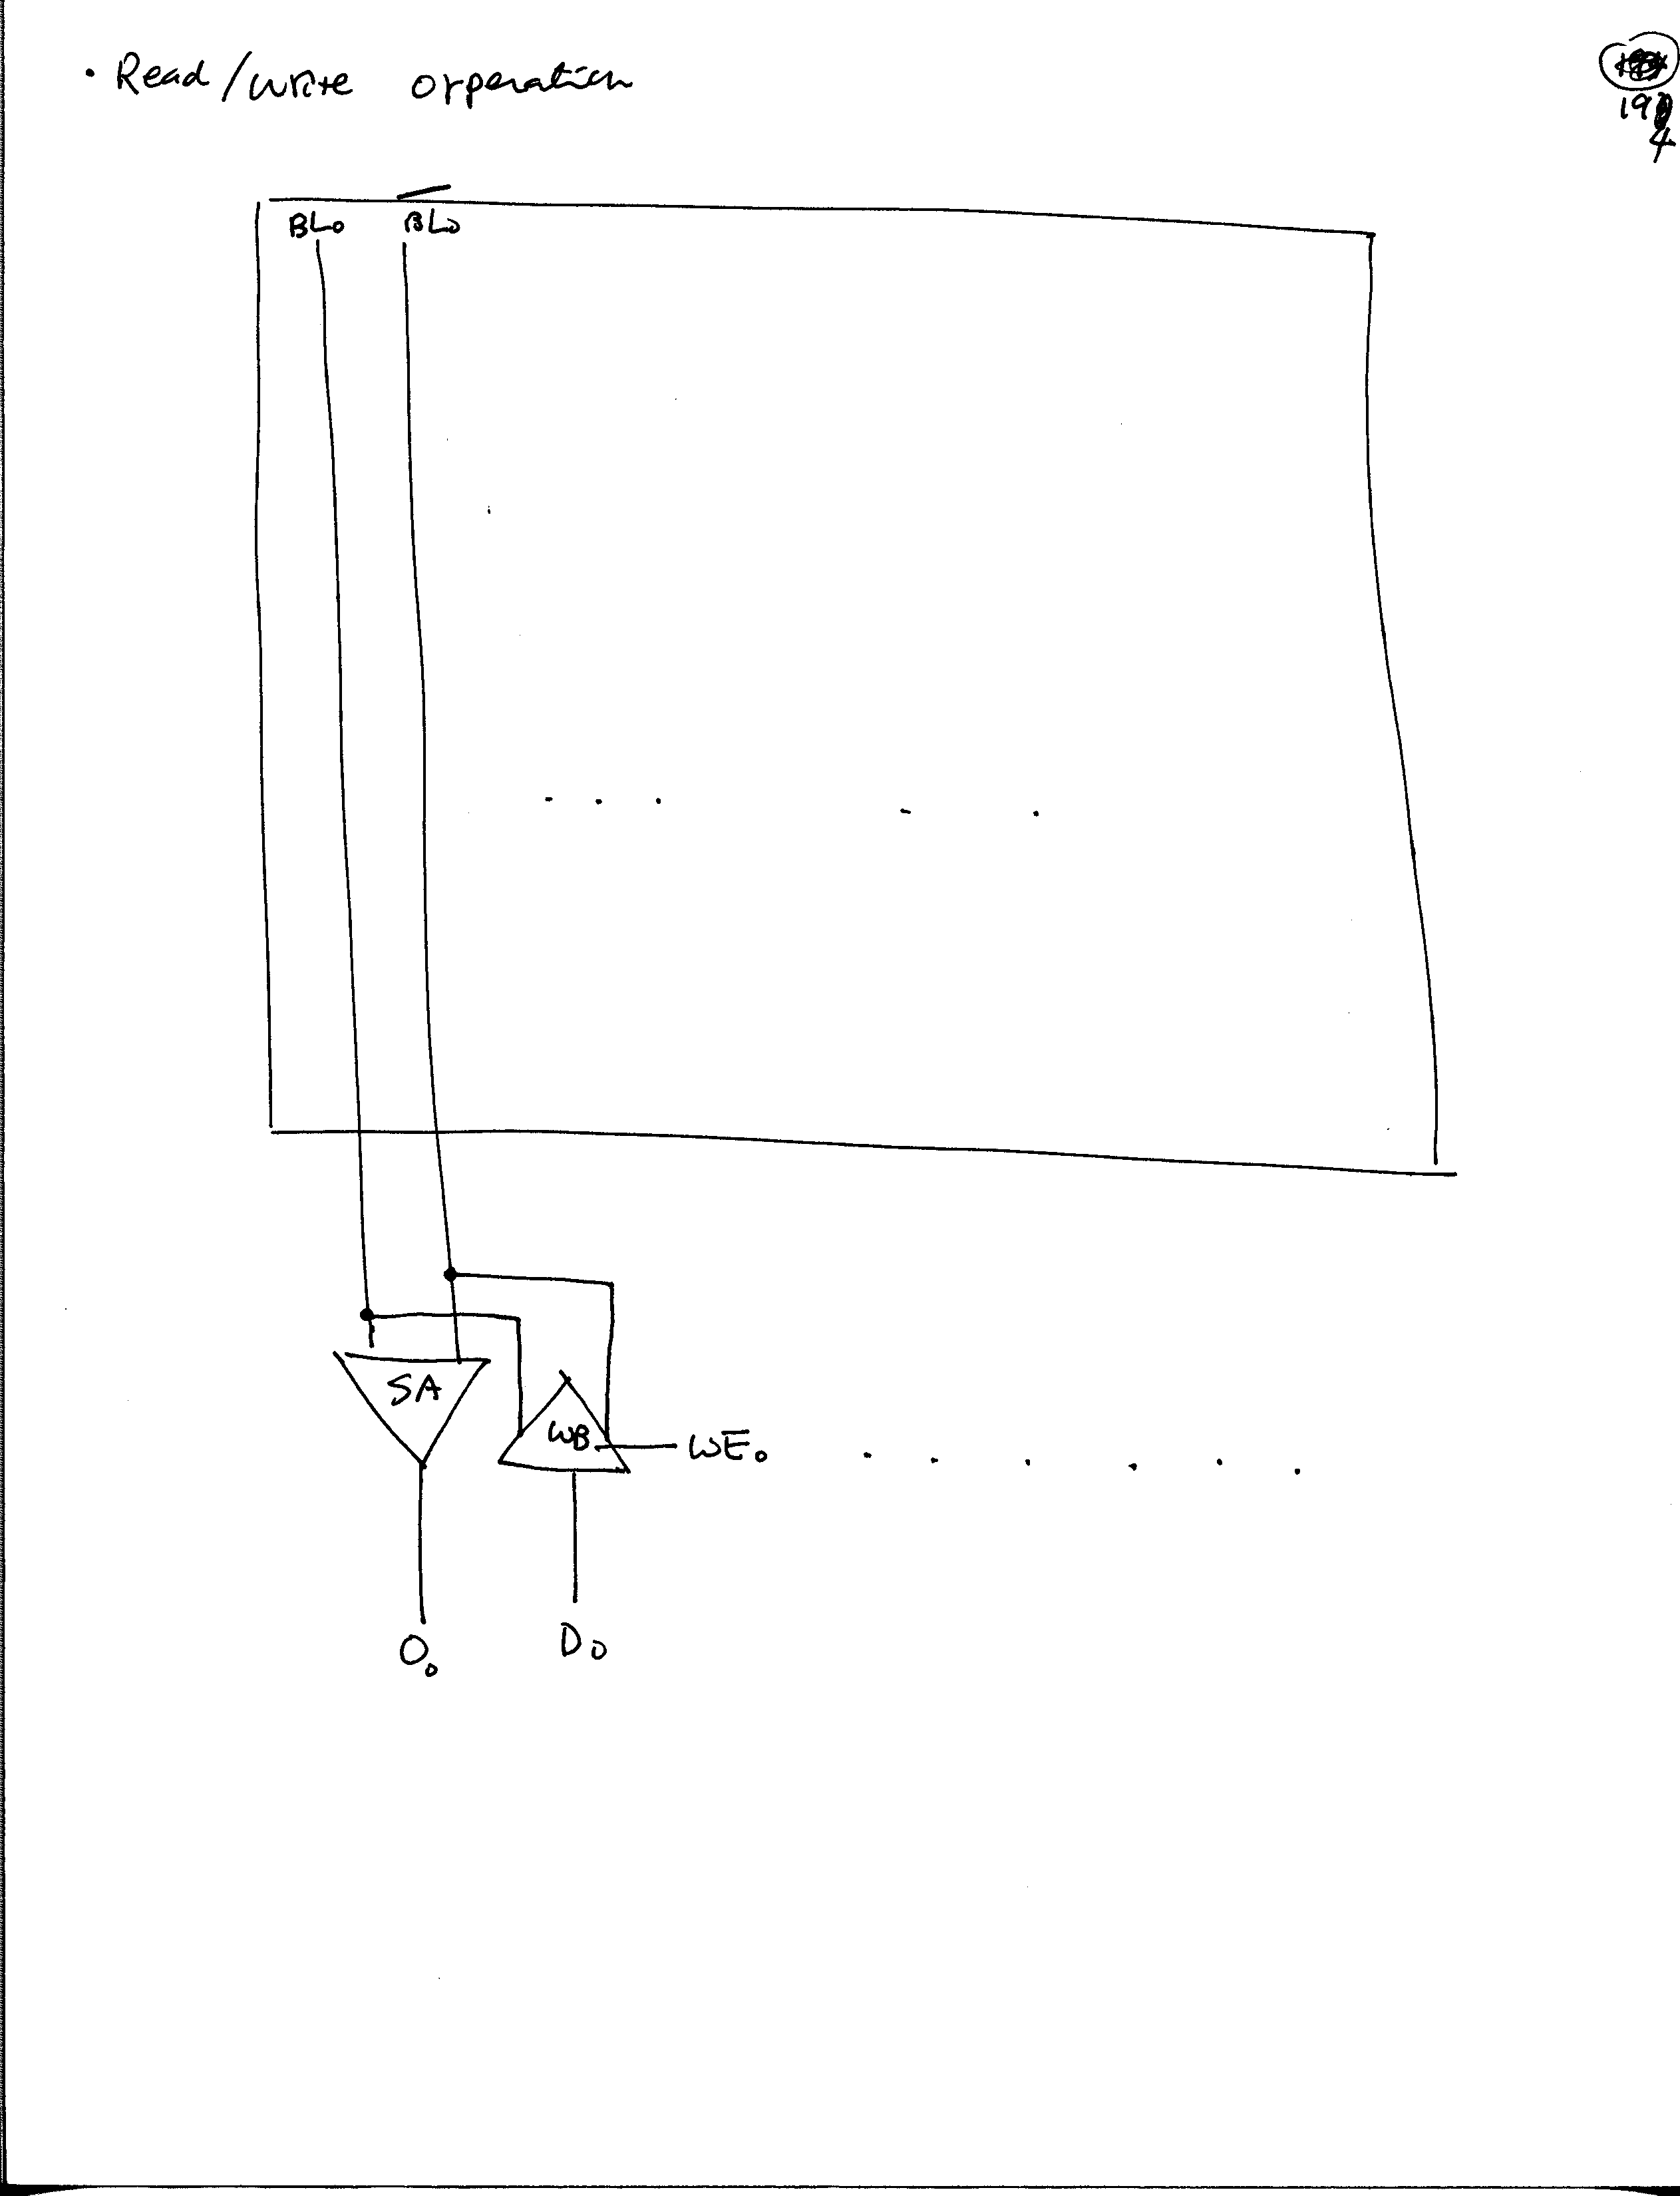 • Read/write orperation
194
BL₀ B̅L̅₀
SA
WB
WE₀
O₀ D₀